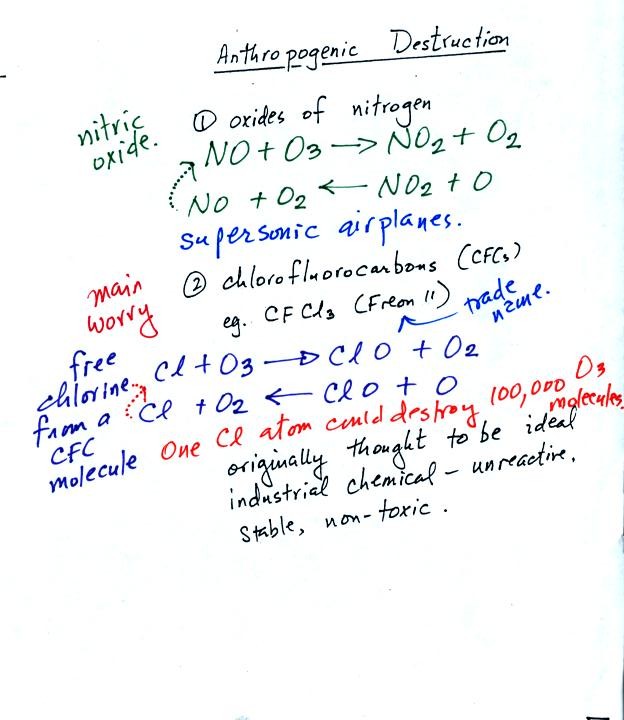 Anthropogenic Destruction
① oxides of nitrogen
nitric
oxide.
NO + O3 → NO2 + O2
NO + O2 ← NO2 + O
supersonic airplanes.
main
worry
② chlorofluorocarbons (CFCs)
eg. CFCl3 (Freon 11)
trade
name.
free
chlorine
from a
CFC
molecule
Cl + O3 → ClO + O2
Cl + O2 ← ClO + O
One Cl atom could destroy 100,000 O3
molecules.
originally thought to be ideal
industrial chemical - unreactive,
stable, non-toxic.